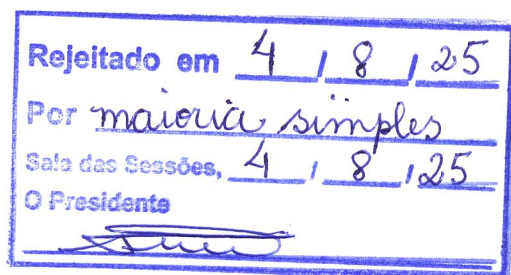 Rejeitado em 4 / 8 / 25
Por maioria simples
Sala das Sessões, 4 / 8 / 25
O Presidente